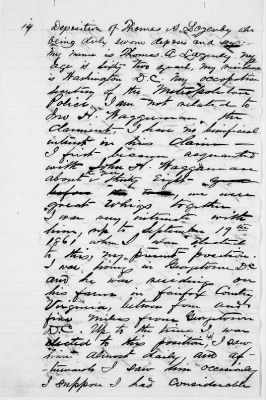 14 Deposition of Thomas A. Lazenby who
being duly sworn deposes and says:
My name is Thomas A Lazenby my
age is sixty two years, my residence
is Washington D.C. My occupation
of the Metropolitan
Police. I am not related to
Jno H. Waggaman, the
claimant. I have no beneficial
interest in his claim.
I first became acquainted
with John H. Waggaman
about thirty Eight
before the war, we were
great Whigs together.
I was very intimate with
him, up to September 19th
1861, when I was elected
to this, my present position.
I was living in Georgetown D.C
and he was residing on
his farm in Fairfax County
Virginia, between four and
five miles from Georgetown
D.C. Up to the time I was
elected to this position, I saw
him almost daily, and af-
terwards I saw him occasionally
I suppose I had considerable